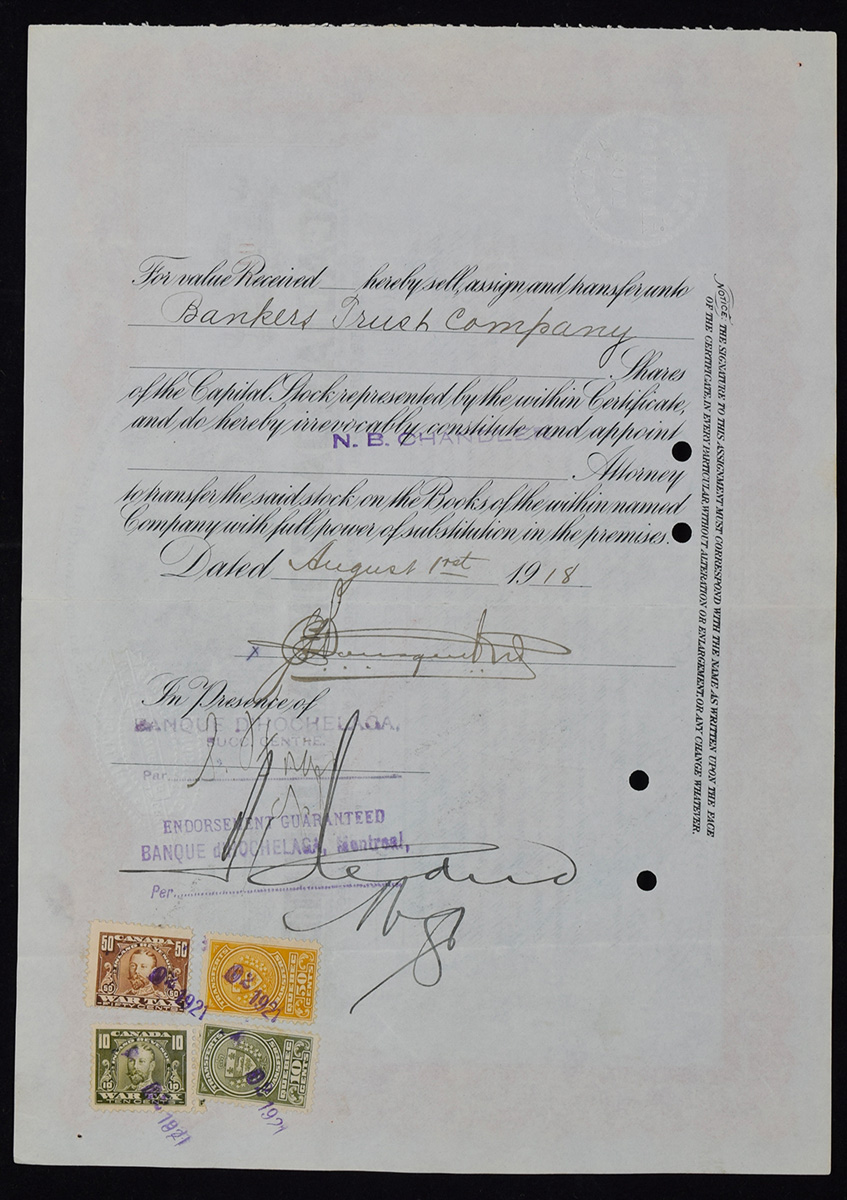 For value Received hereby sell, assign and transfer unto
Bankers Trust Company
Shares
of the Capital Stock represented by the within Certificate,
and do hereby irrevocably constitute and appoint
N. B. CHANDLER
Attorney
to transfer the said stock on the Books of the within named
Company with full power of substitution in the premises.
Dated August 1rst 1918
x
In Presence of
BANQUE D'HOCHELAGA,
SUCC. CENTRE.
Par
ENDORSEMENT GUARANTEED
BANQUE d'HOCHELAGA, Montreal,
Per
Mgr
NOTICE: THE SIGNATURE TO THIS ASSIGNMENT MUST CORRESPOND WITH THE NAME AS WRITTEN UPON THE FACE
OF THE CERTIFICATE, IN EVERY PARTICULAR WITHOUT ALTERATION OR ENLARGEMENT OR ANY CHANGE WHATEVER.
50 CANADA 50
INLAND REVENUE
50 50
WAR TAX
FIFTY CENTS
1921
TRANSFERTS
QUEBEC
50 CENTS
1921
10 CANADA 10
INLAND REVENUE
10 10
WAR TAX
TEN CENTS
1921
TRANSFERTS
QUEBEC
10 CTS
1921